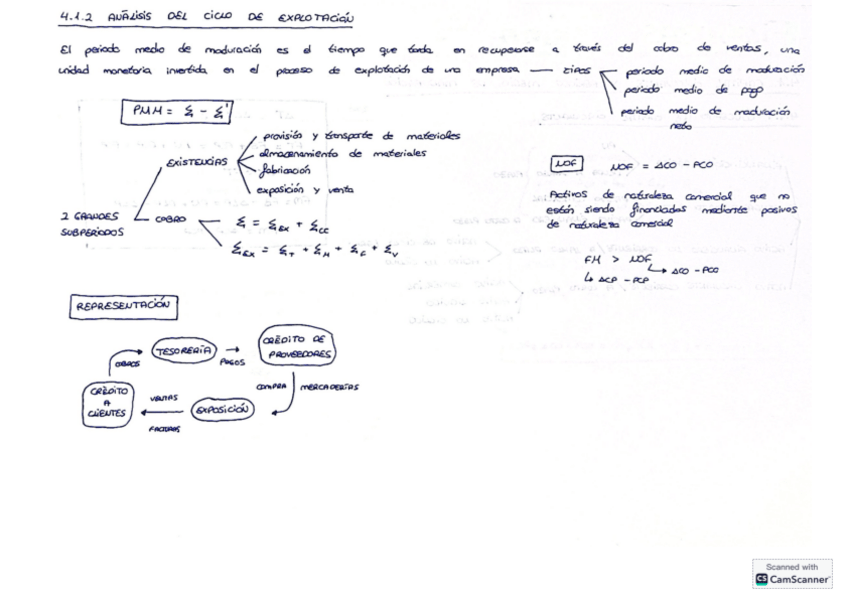 4.1.2 ANÁLISIS DEL CICLO DE EXPLOTACIÓN
El periodo medio de maduración es el tiempo que tarda en recuperarse a través del cobro de ventas, una
unidad monetaria invertida en el proceso de explotación de una empresa — TIPOS
periodo medio de maduración
periodo medio de pago
periodo medio de maduración
neto
PMM = Σ - Σ'
2 GRANDES
SUBPERÍODOS
EXISTENCIAS
provisión y transporte de materiales
almacenamiento de materiales
fabricación
exposición y venta
COBRO
Σ = Σ_EX + Σ_CC
Σ_EX = Σ_T + Σ_M + Σ_F + Σ_V
NOF
NOF = ACO - PCO
Activos de naturaleza comercial que no
están siendo financiados mediante pasivos
de naturaleza comercial
FM > NOF
↳ ACO - PCO
↳ ACP - PCP
REPRESENTACIÓN
TESORERÍA
→
PAGOS
CRÉDITO DE
PROVEEDORES
COMPRA MERCADERÍAS
EXPOSICIÓN
VENTAS
←
FACTURAS
CRÉDITO
A
CLIENTES
COBROS
Scanned with
CS CamScanner